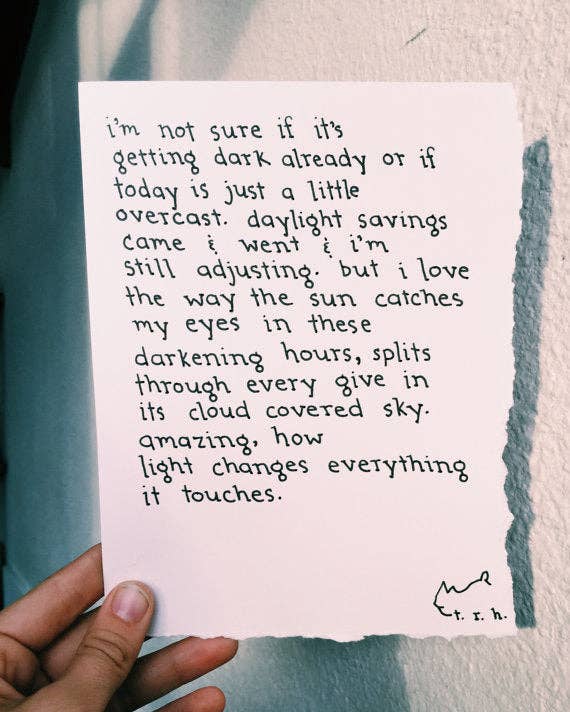 i'm not sure if it's
getting dark already or if
today is just a little
overcast. daylight savings
came & went & i'm
still adjusting. but i love
the way the sun catches
my eyes in these
darkening hours, splits
through every give in
its cloud covered sky.
amazing, how
light changes everything
it touches.
t. r. h.